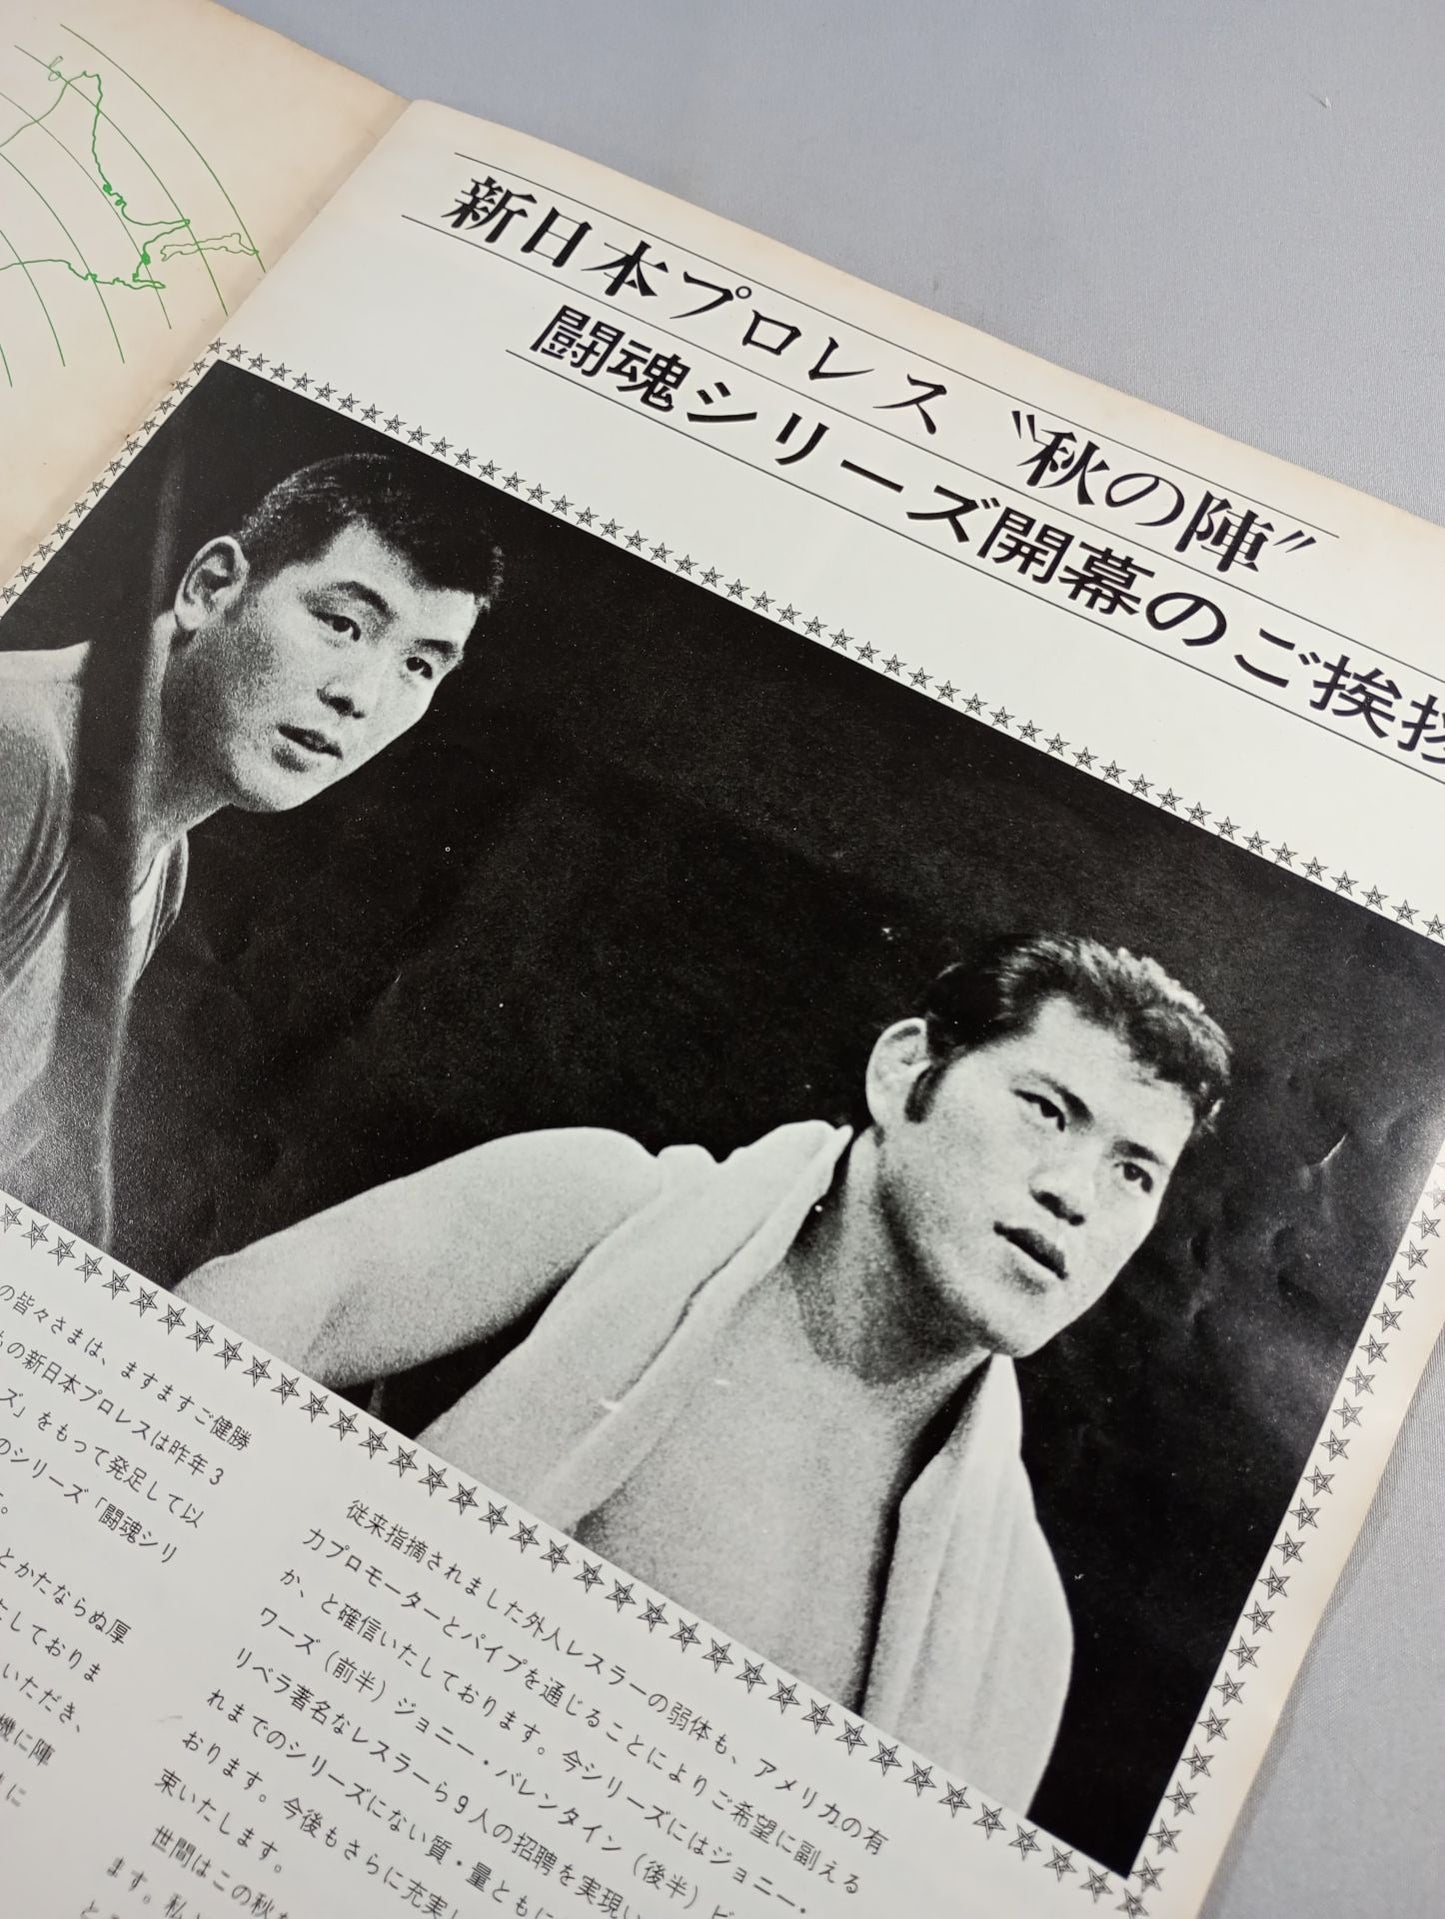 新日本プロレス〝秋の陣〟
闘魂シリーズ開幕のご挨拶
の皆々さまは、ますますご健勝
の新日本プロレスは昨年3
ズ」をもって発足して以
のシリーズ「闘魂シリ
とかたならぬ厚
しておりま
いただき、
機に陣
に
従来指摘されました外人レスラーの弱体も、アメリカの有
力プロモーターとパイプを通じることによりご希望に副える
か、と確信いたしております。今シリーズにはジョニー・
ワーズ（前半）ジョニー・バレンタイン（後半）ビ
リベラ著名なレスラーら9人の招聘を実現い
れまでのシリーズにない質・量ともに
おります。今後もさらに充実し
束いたします。
世間はこの秋
ます。私